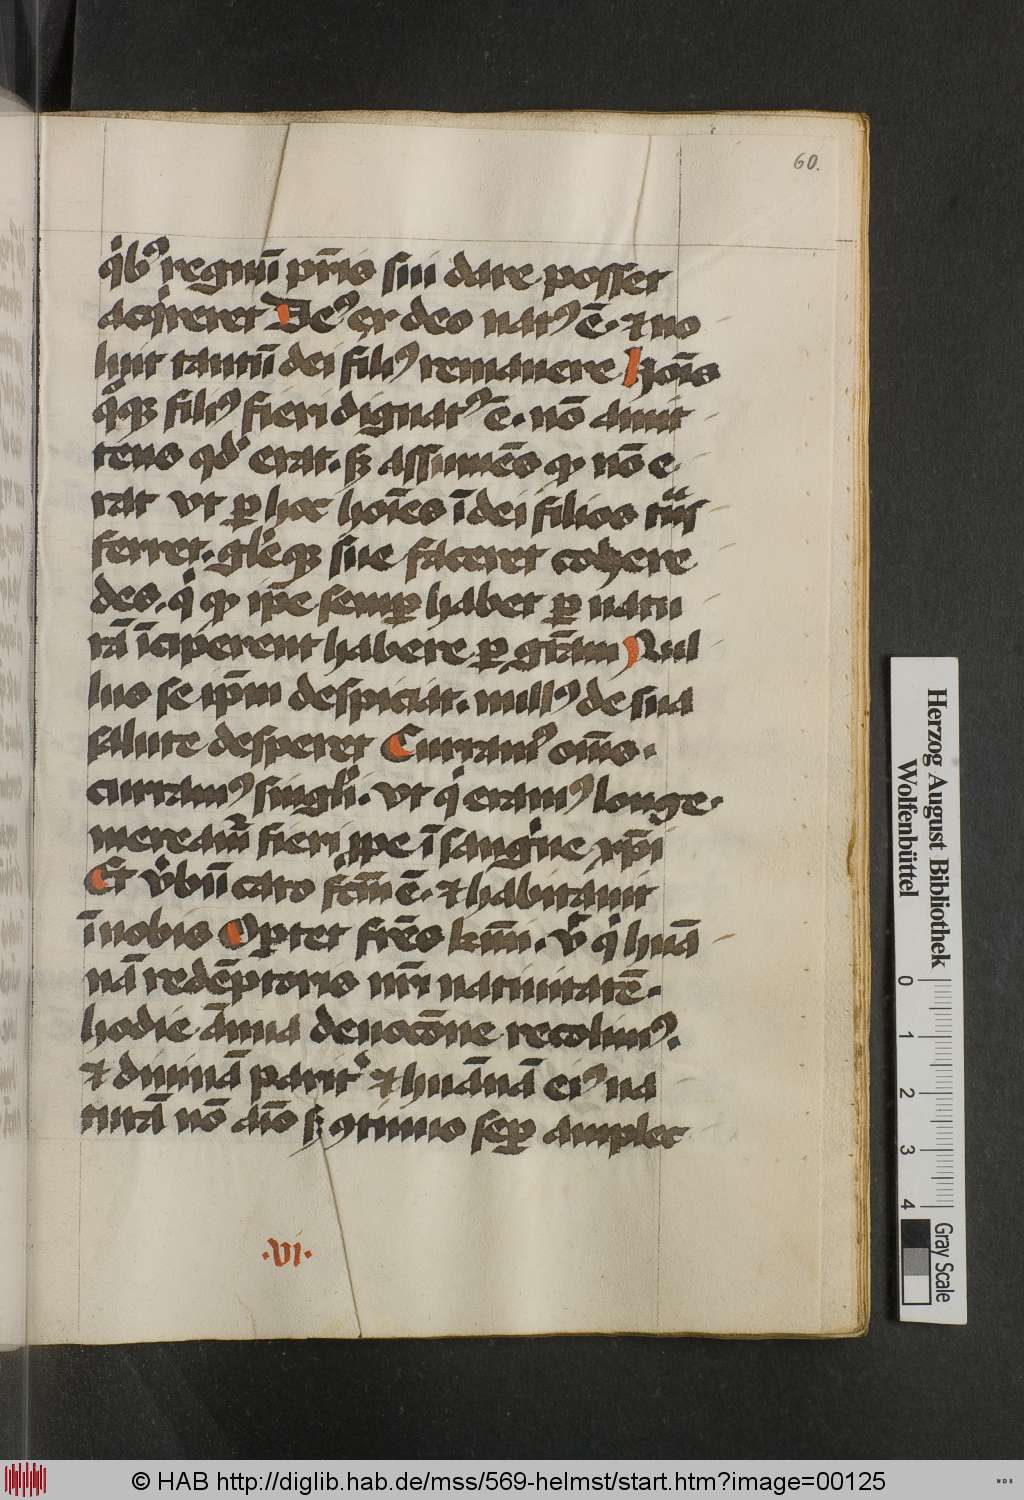 60.
qͥbꝰ regnū pr̄is sui dare posset
acqͥreret Deꝰ ex deo natꝰ ē · ⁊ no
luit tantū dei filiꝰ remanere hoīs
qͦqꝫ filiꝰ fieri dignatꝰ ē · nō amit
tens qd' erat · sꝫ assumēs qͩ nō e
rat vt ꝑ hoc hoīes ī dei filios tͣns
ferret · gl'eqꝫ sue faceret cohere
des · qͥ qͩ ip̄e semꝑ habet ꝑ natu
rā īciperent habere ꝑ gr̄am Nul
lus se ip̄m despiciat · nullꝰ de sua
salute desperet Curramꝰ om̄s ·
curramꝰ singl'i · vt qͥ eramꝰ longe ·
mereamͬ fieri ꝓpe ī sangͥne xp̄i
Et v̓bū caro fc̄m ē · ⁊ habitauit
ī nobis Oꝑtet fr̄es km̄i · vͭ qͥ huā
nā redēptoris nr̄i natiuitatē ·
hodie ānua deuocōne recolimꝰ ·
⁊ diuinā paritͬ ⁊ huānā eiꝰ na
turā nō aīo sꝫ ꝯtinuo seꝑ amplec
·vi·
Herzog August Bibliothek
Wolfenbüttel
0 1 2 3 4
Gray Scale
© HAB http://diglib.hab.de/mss/569-helmst/start.htm?image=00125